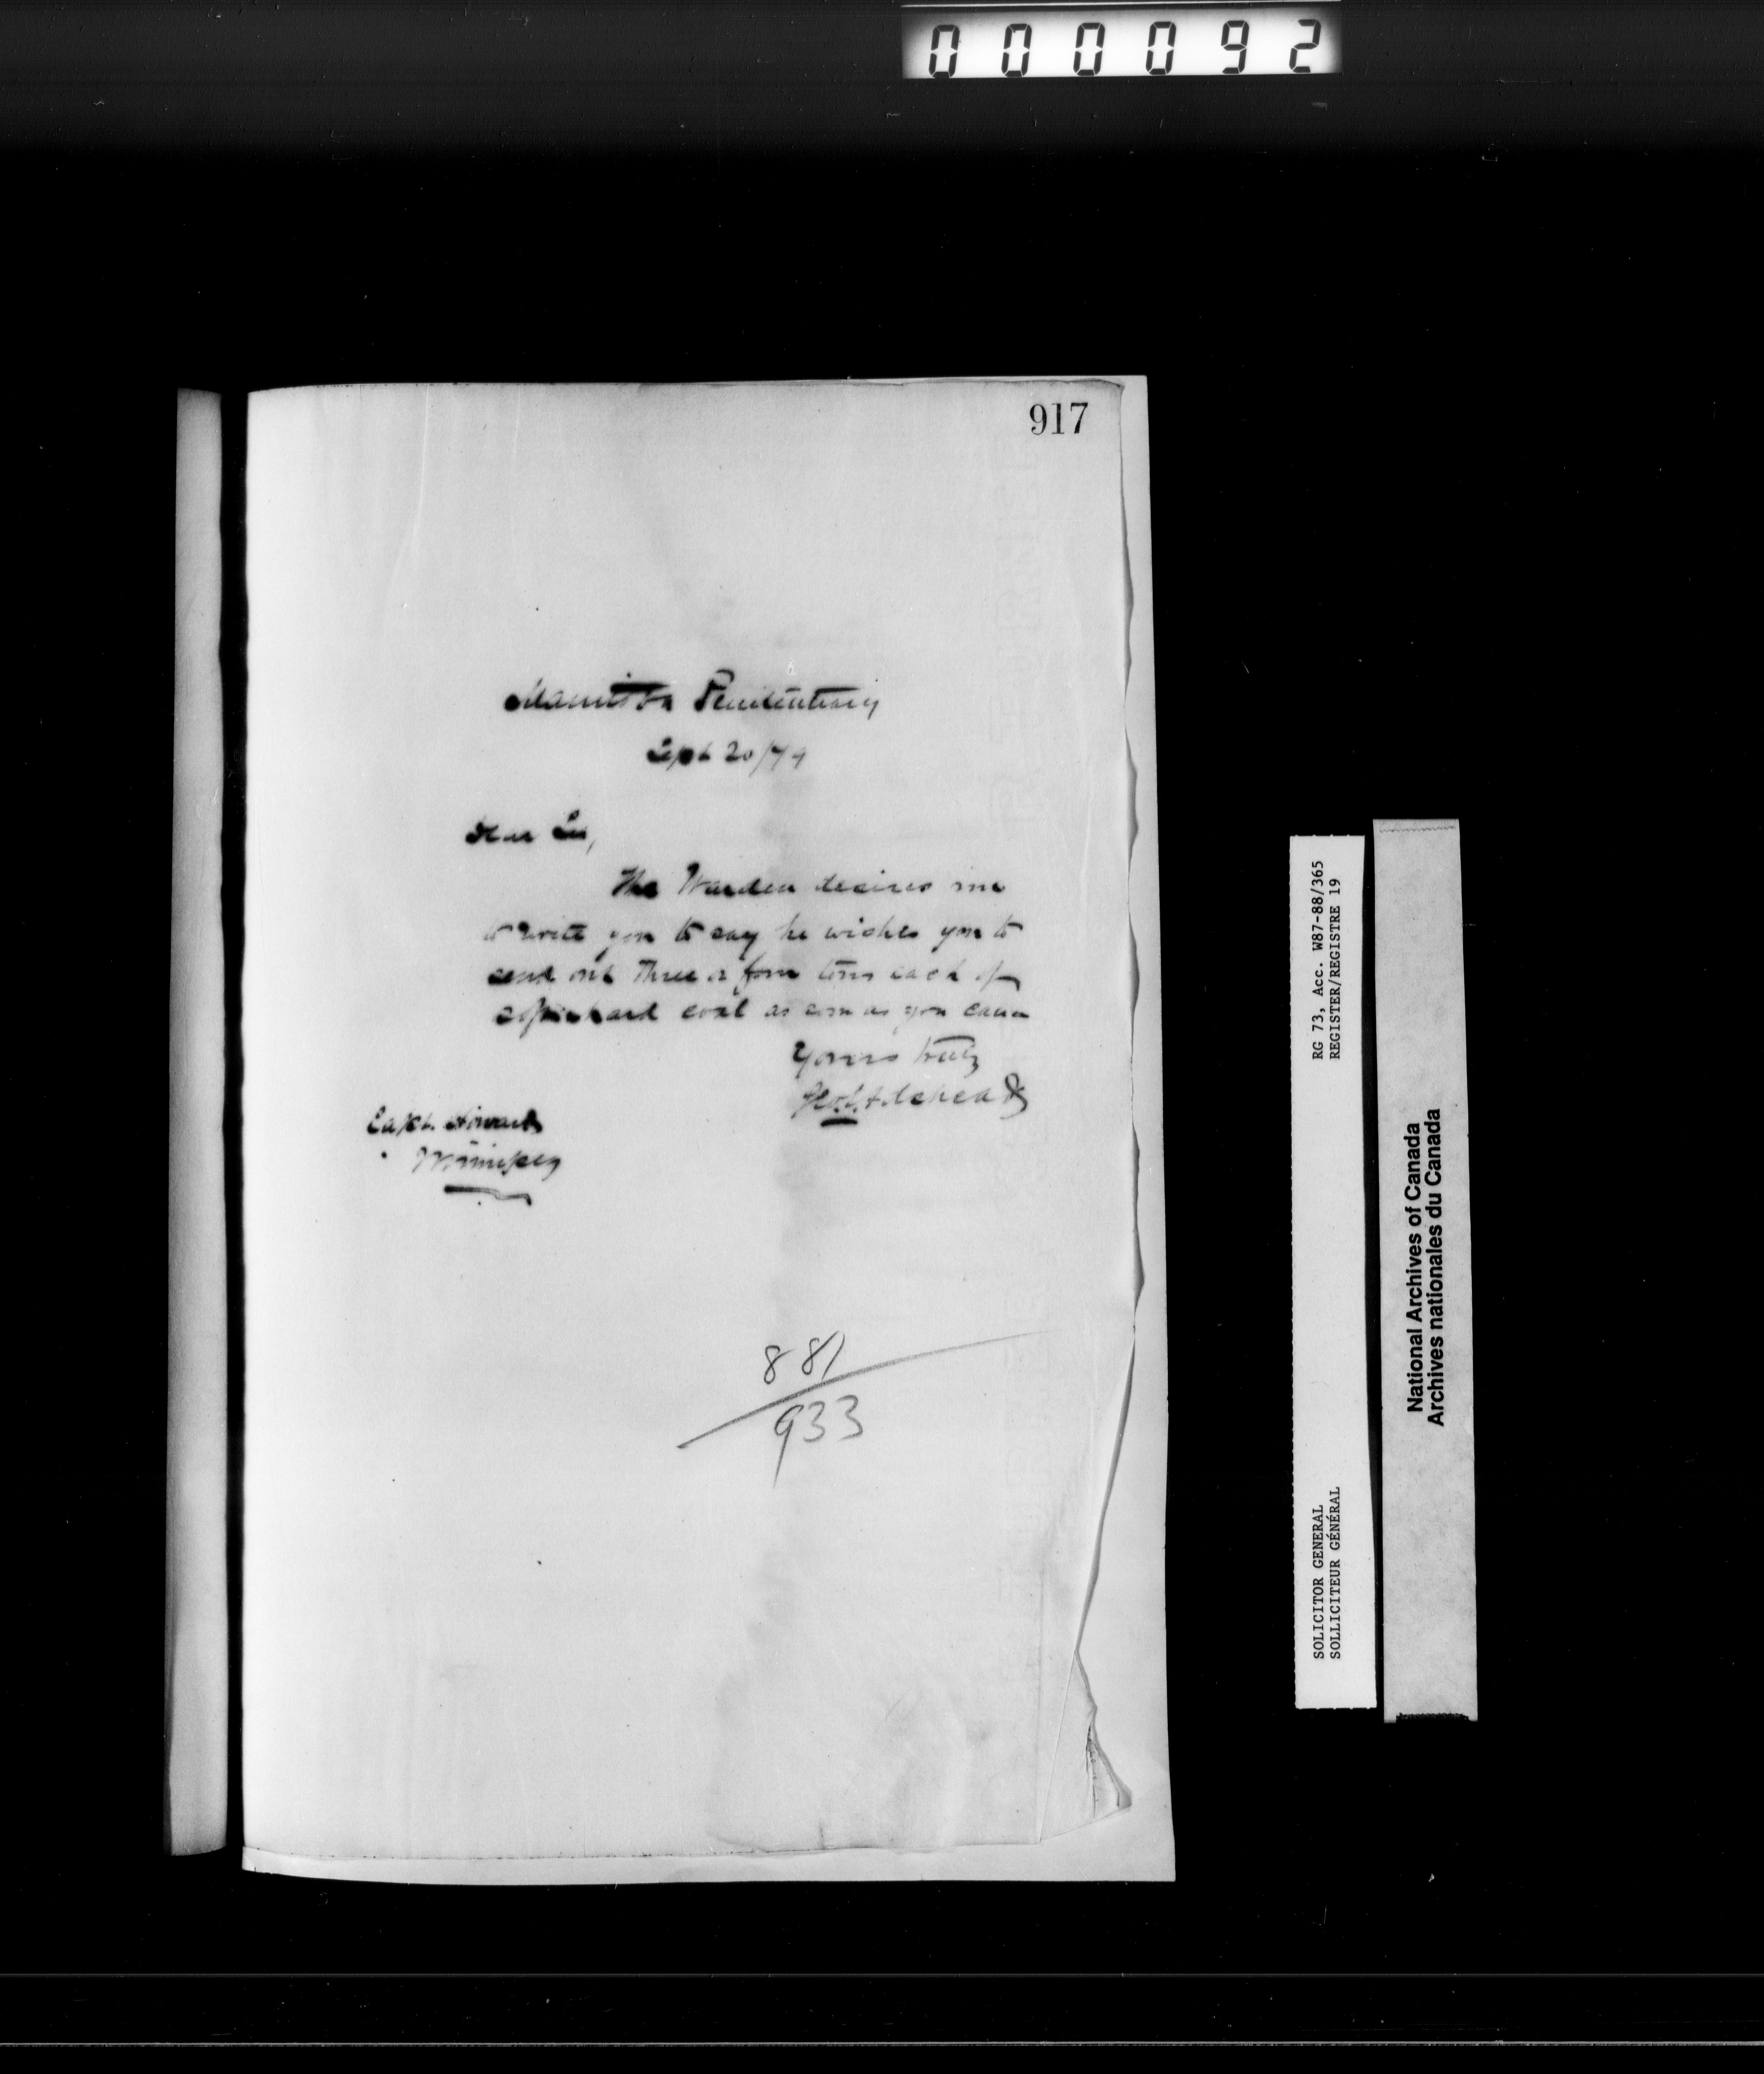 000092
917
Manitoba Penitentiary
Sept 20/79
Dear Sir,
The Warden desires me
to write you to say he wishes you to
send out three or four tons each of
hard coal as soon as you can
Yours truly
Capt. Howard
Winnipeg
881
933
RG 73, Acc. W87-88/365
REGISTER/REGISTRE 19
SOLICITOR GENERAL
SOLLICITEUR GÉNÉRAL
National Archives of Canada
Archives nationales du Canada